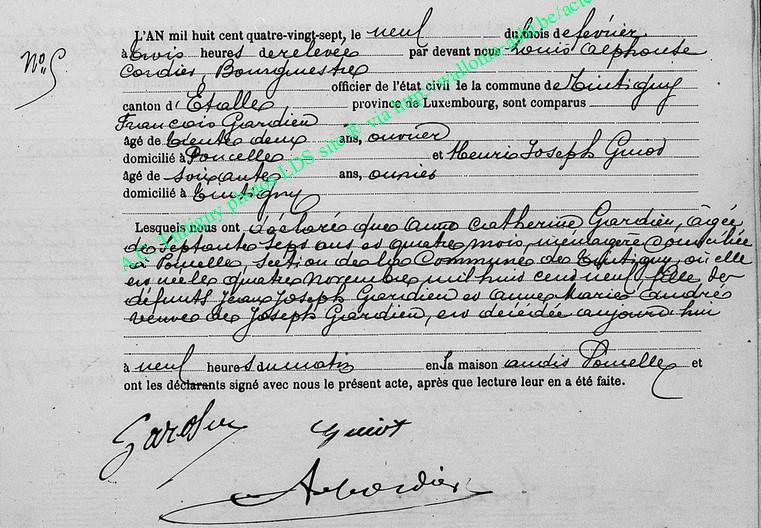 N° 5
L'AN mil huit cent quatre-vingt-sept, le neuf du mois de février
à trois heures de relevée par devant nous Louis Alphonse
Cordier, Bourgmestre
officier de l'état civil de la commune de Tintigny
canton d'Etalle, province de Luxembourg, sont comparus
François Gardien
âgé de trente deux ans, ouvrier
domicilié à Poncelle et Henri Joseph Guiot
âgé de soixante ans, ouvrier
domicilié à Tintigny
Lesquels nous ont déclaré que Anne Catherine Gardien, âgée
de septante sept ans et quatre mois, ménagère domiciliée
à Poncelle section de la Commune de Tintigny, où elle
est née le quatre Novembre mil huit cent neuf, fille des
défunts Jean Joseph Gardien et Anne Marie André
veuve de Joseph Gardien, est décédée aujourd'hui
à neuf heures du matin en la maison audit Poncelle et
ont les déclarants signé avec nous le présent acte, après que lecture leur en a été faite.
Guiot
A Cordier
A.C. Tintigny photos LDS site ® via http://wallonia-gml.be/acte